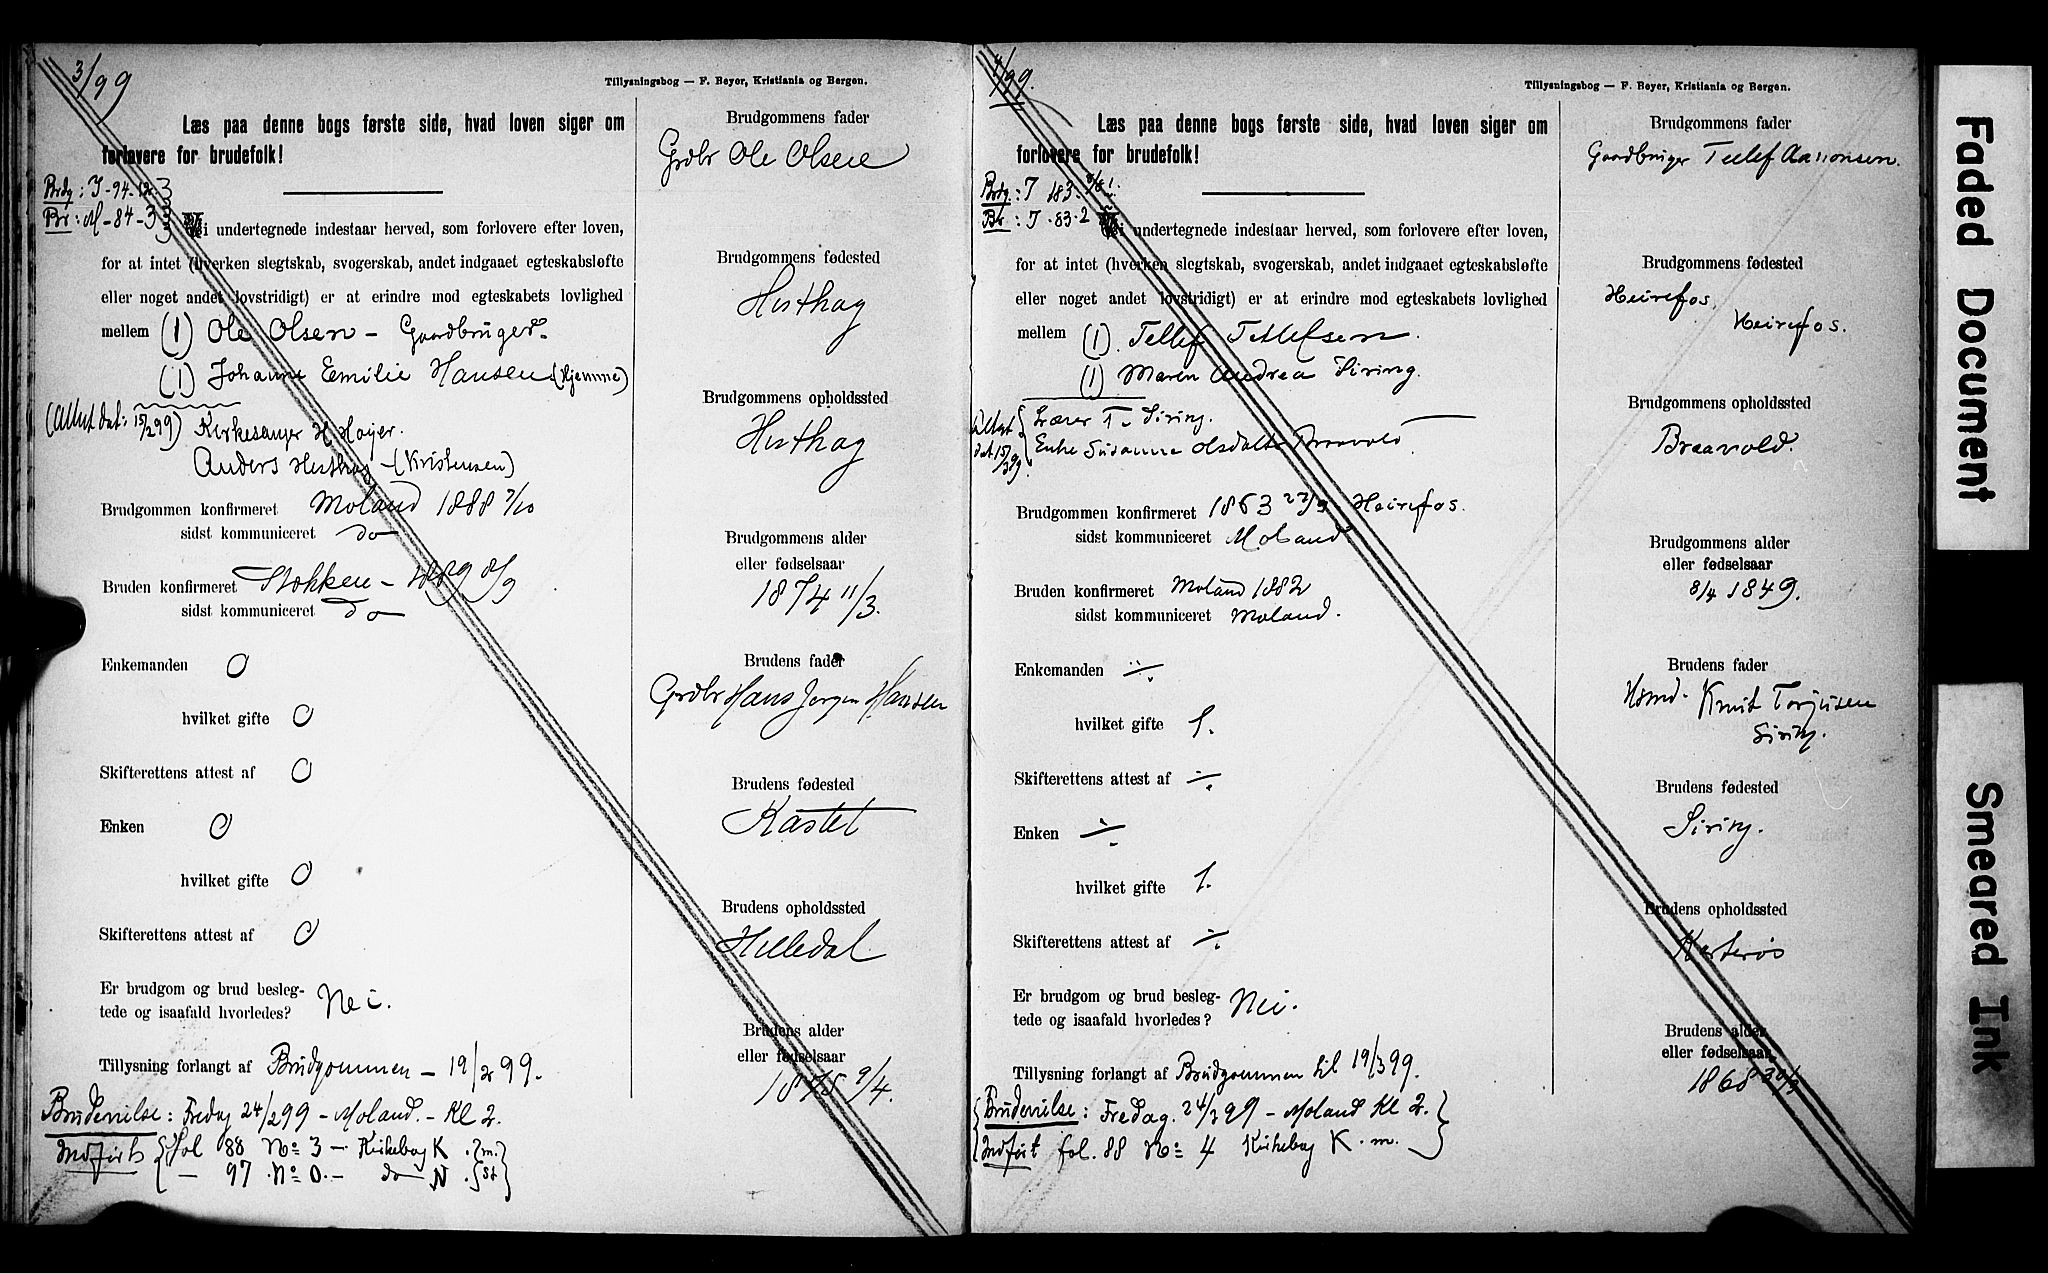 3/99
Tillysningsbog — F. Beyer, Kristiania og Bergen.
Læs paa denne bogs første side, hvad loven siger om
forlovere for brudefolk!
Brdg: I-94-12-3
Br: M-84-3
Vi undertegnede indestaar herved, som forlovere efter loven,
for at intet (hverken slegtskab, svogerskab, andet indgaaet egteskabsløfte
eller noget andet lovstridigt) er at erindre mod egteskabets lovlighed
mellem (1) Ole Olsen – Gaardbruger
(1) Johanne Emilie Hansen (hjemme)
(Attest dat: 15/2 99) Kirkesanger H. Høyer.
Anders Hesthag – (Kristensen)
Brudgommen konfirmeret Moland 1888 7/10
sidst kommuniceret do
Bruden konfirmeret Stokken – 1889 8/9
sidst kommuniceret do
Enkemanden 0
hvilket gifte 0
Skifterettens attest af 0
Enken 0
hvilket gifte 0
Skifterettens attest af 0
Er brudgom og brud besleg-
tede og isaafald hvorledes? Nei.
Tillysning forlangt af Brudgommen – 19/2 99.
Brudevielse: Fredag 24/2 99 – Moland. – Kl 2.
Indført { fol 88 No 3 – Kirkebog K. {m.}
– 97 No 0. – do N. {St}
Brudgommens fader
Grdbr Ole Olsen
Brudgommens fødested
Hesthag
Brudgommens opholdssted
Hesthag
Brudgommens alder
eller fødselsaar
1874 11/3.
Brudens fader
Grdbr Hans Jørgen Hansen
Brudens fødested
Kastet
Brudens opholdssted
Hilledal
Brudens alder
eller fødselsaar
1875 9/4.
4/99.
Tillysningsbog — F. Beyer, Kristiania og Bergen.
Læs paa denne bogs første side, hvad loven siger om
forlovere for brudefolk!
Brdg: I 183.
Br: I. 83. 2
Vi undertegnede indestaar herved, som forlovere efter loven,
for at intet (hverken slegtskab, svogerskab, andet indgaaet egteskabsløfte
eller noget andet lovstridigt) er at erindre mod egteskabets lovlighed
mellem (1). Tellef Tellefsen.
(1) Maren Andrea Siring.
Attest dat. 15/3 99. { Lærer T. Siring.
Enke Susanne Olsdatter Braavold
Brudgommen konfirmeret 1863 27/9 Heirefos.
sidst kommuniceret Moland
Bruden konfirmeret Moland 1882
sidst kommuniceret Moland.
Enkemanden ÷
hvilket gifte 1.
Skifterettens attest af ÷
Enken ÷
hvilket gifte 1.
Skifterettens attest af ÷
Er brudgom og brud besleg-
tede og isaafald hvorledes? Nei.
Tillysning forlangt af Brudgommen til 19/3 99.
{ Brudevielse: Fredag. 24/3 99 – Moland Kl 2. }
{ Indført fol. 88 No 4 Kirkebog K. m. }
Brudgommens fader
Gaardbruger Tellef Aanonsen.
Brudgommens fødested
Heirefos.
Heirefos.
Brudgommens opholdssted
Braavold.
Brudgommens alder
eller fødselsaar
8/4 1849.
Brudens fader
Hsmd. Knut Torjusen
Siring.
Brudens fødested
Siring.
Brudens opholdssted
Kerterøs
Brudens alder
eller fødselsaar
1868
Faded Document
Smeared Ink